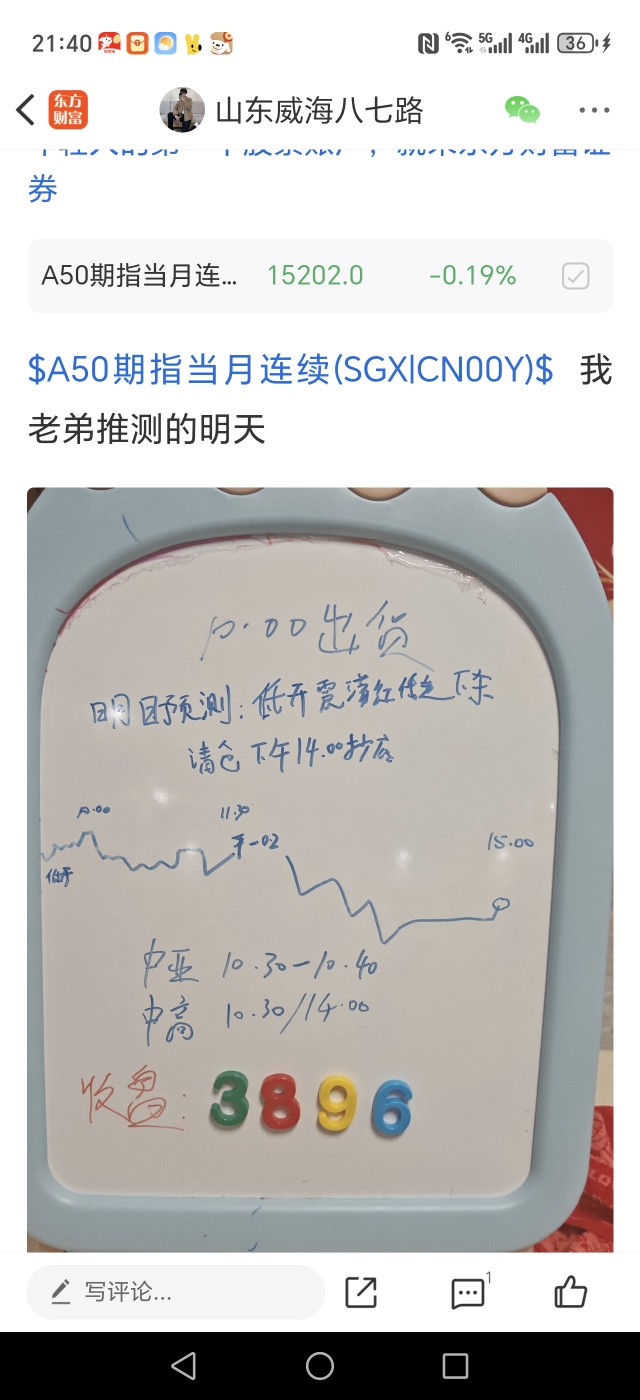 21:40
6 5G 4G 36
东方
财富
山东威海八七路
券
A50期指当月连... 15202.0 -0.19%
$A50期指当月连续(SGX|CN00Y)$ 我
老弟推测的明天
10.00出货
明日预测:低开震荡红 下午
清仓下午14.00抄底
10.00 11.30
低开 平-0.2 15.00
中亚 10.30-10.40
中高 10.30/14.00
收盘: 3896
写评论... 1